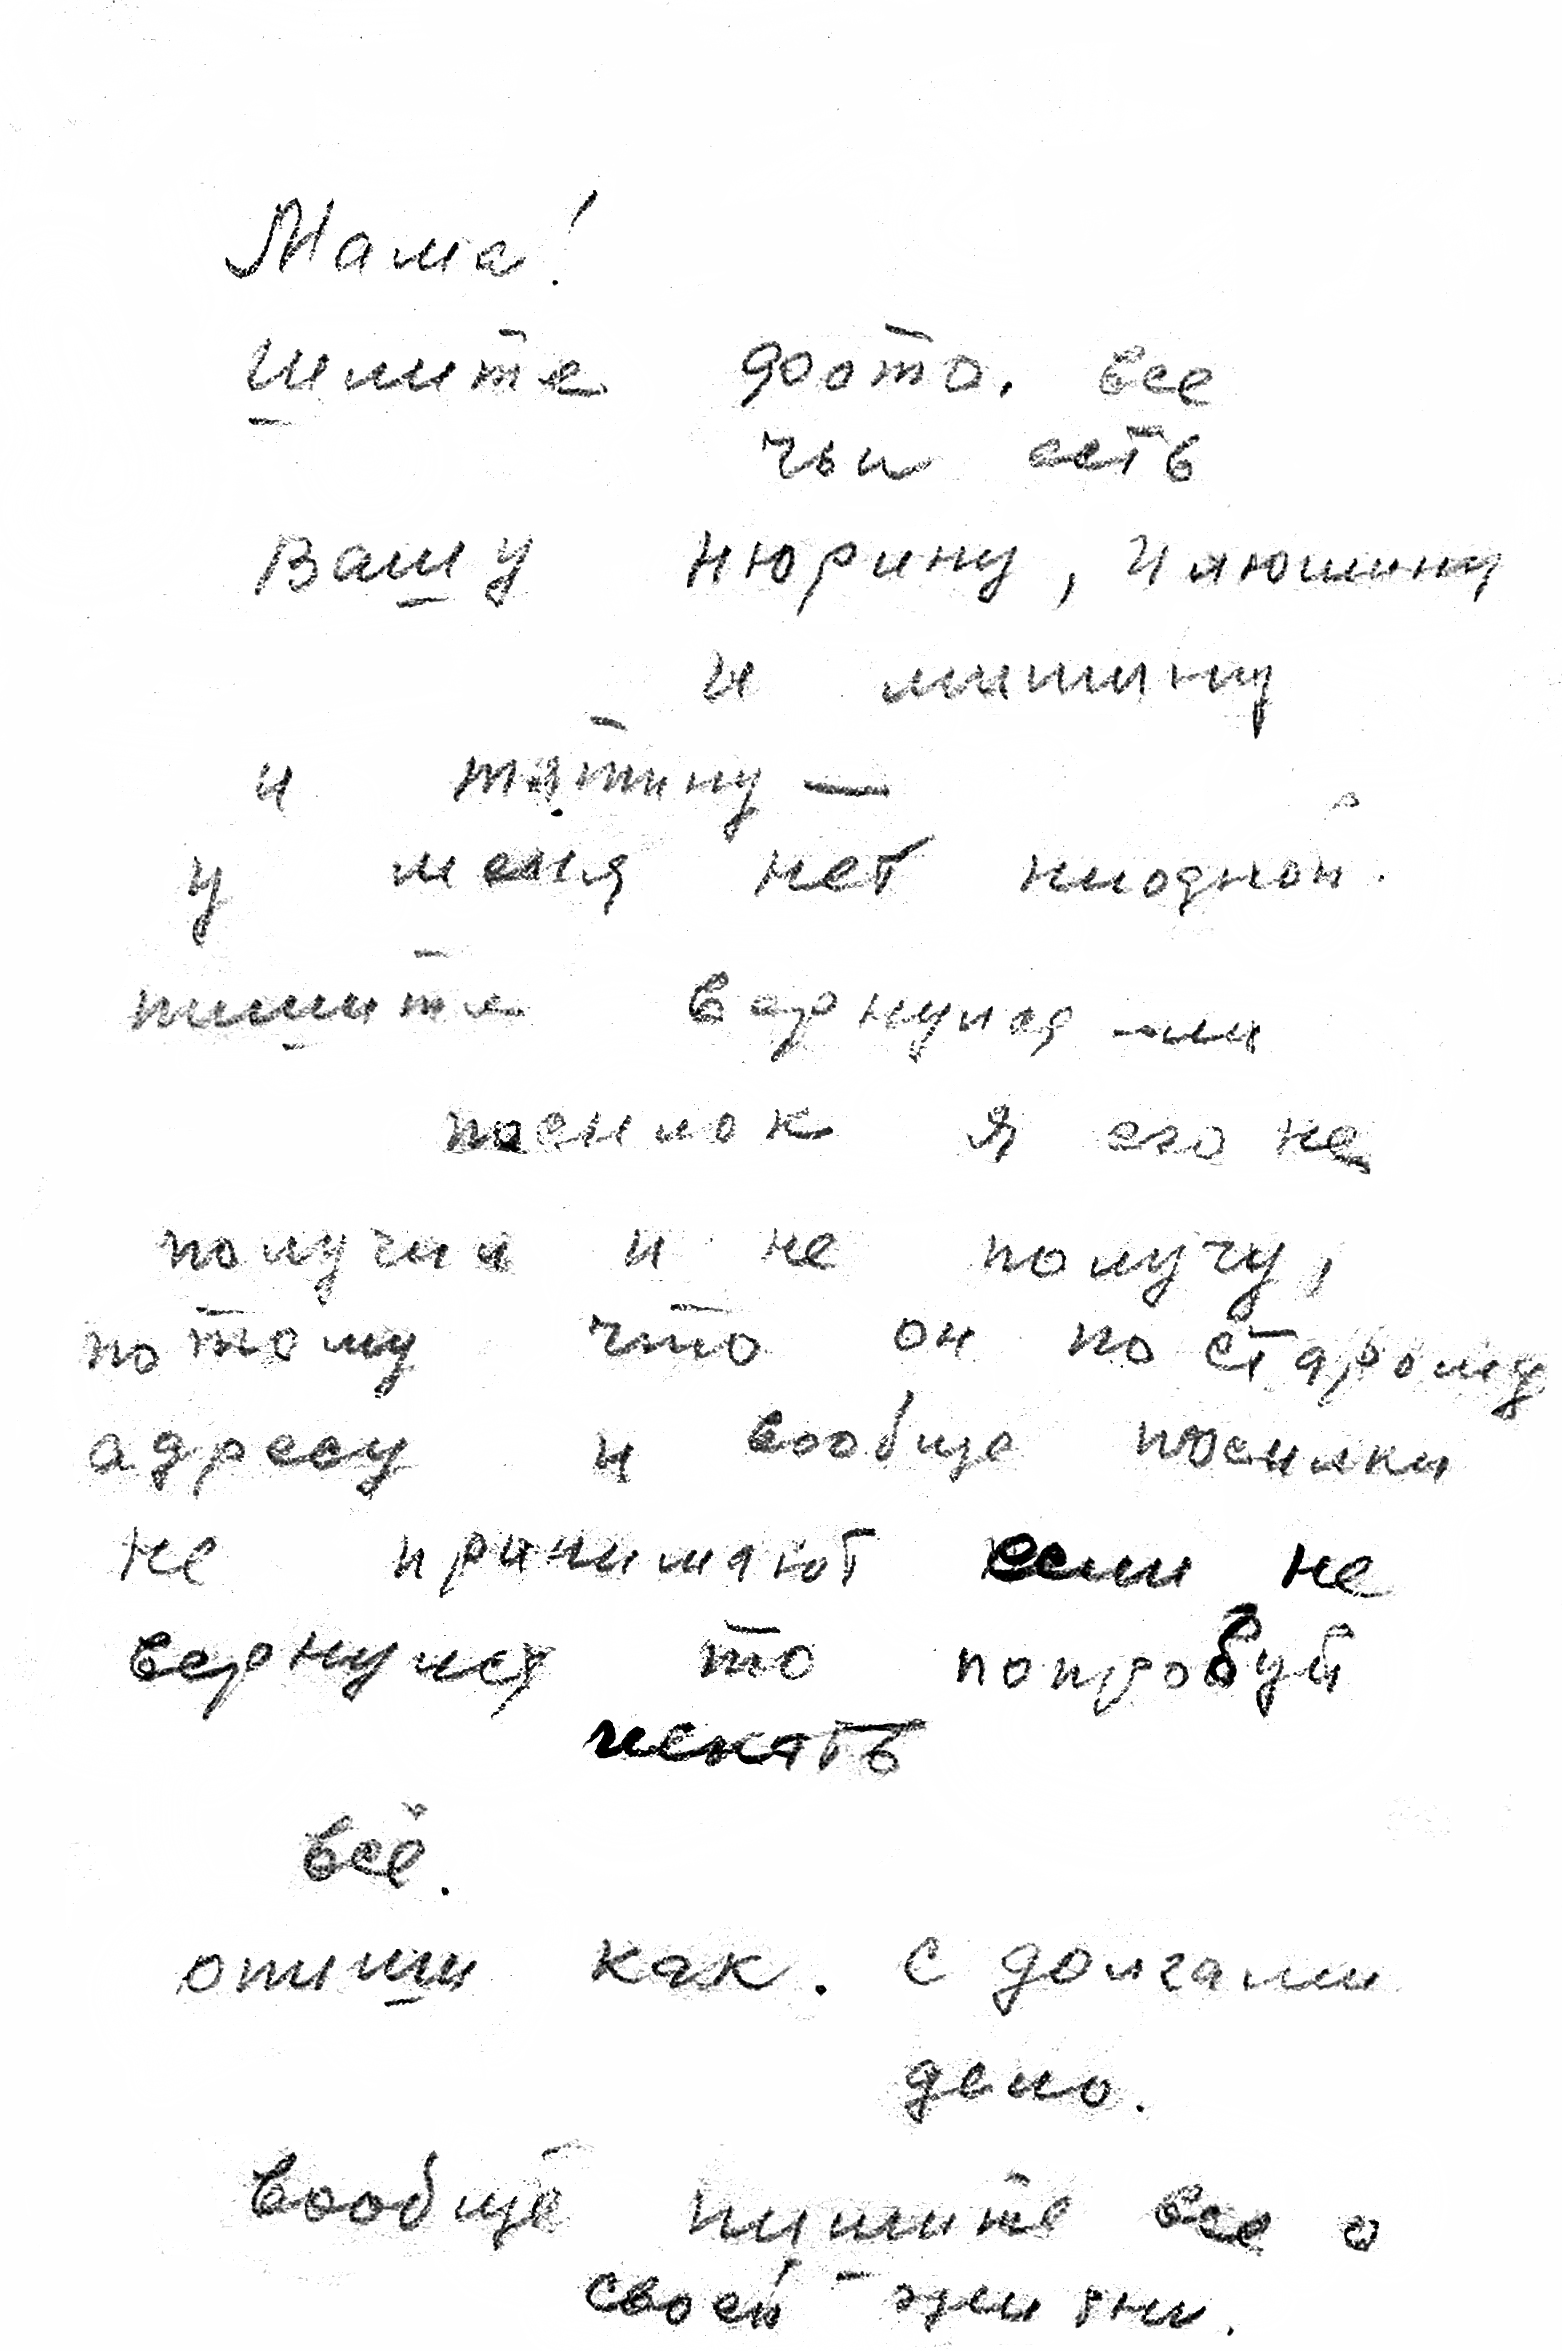 Мама!
Шлите фото. все
чьи есть
Вашу Нюрину, Илюшину
и мишину
и тятину —
у меня нет ниодной.
пишите вернулся -ли
посылок я его не
получил и не получу,
потому что он по старому
адресу и вообще посылки
не принимают если не
вернулся то попробуй
искать
всё.
опиши как. с долгами
дело.
вообще пишите все о
своей жизни.